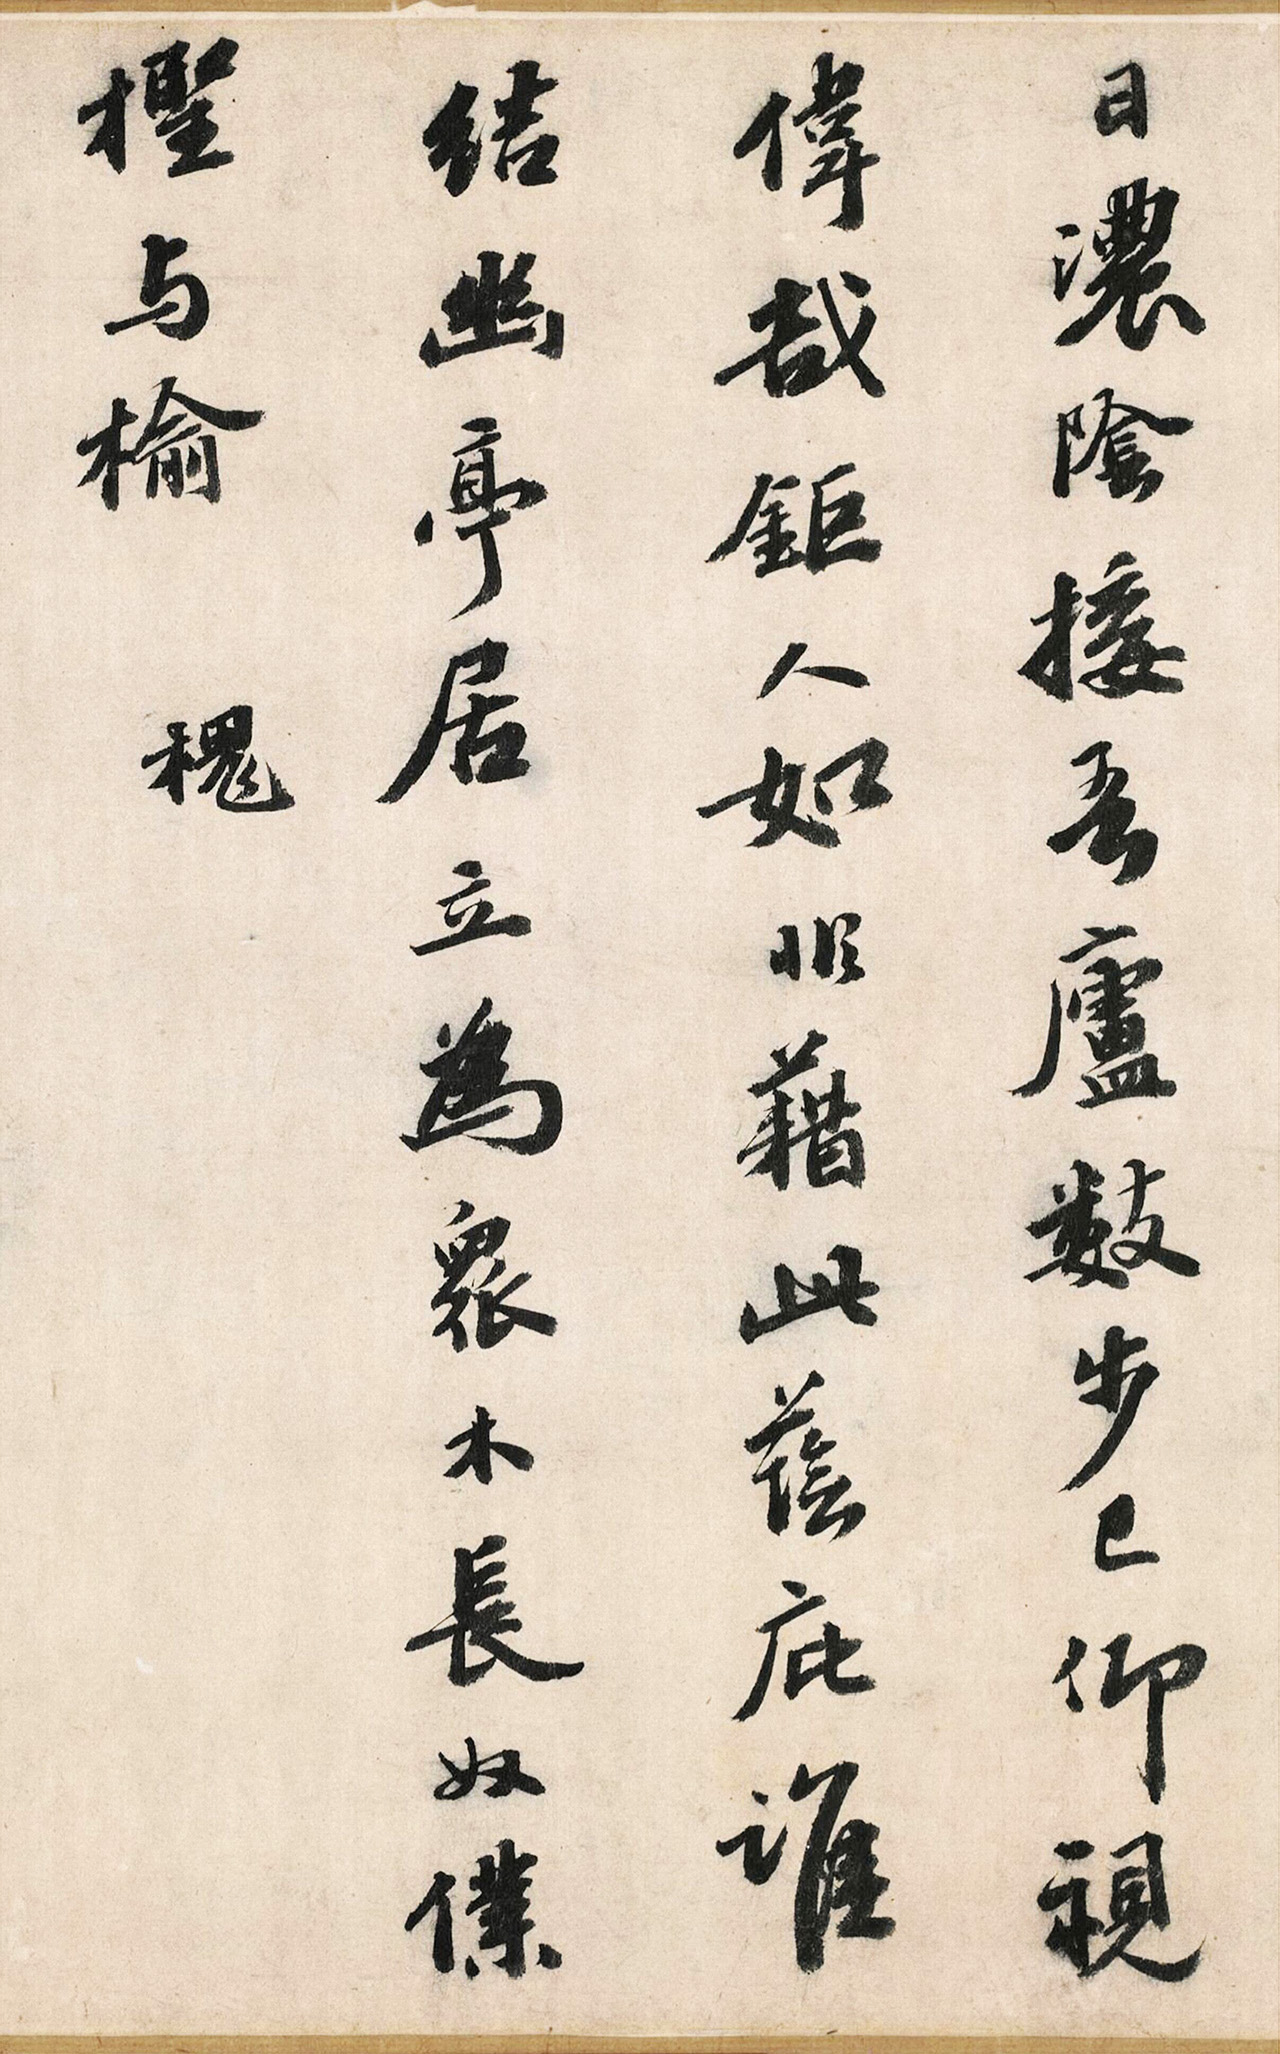 日濃陰接吾廬數步已仰視
偉哉鉅人如非藉此蔭庇誰
結幽亭居立為眾木長奴僕
檉与榆 槐